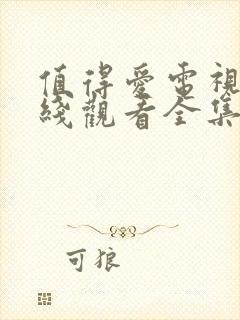 值得愛電視
綫觀看全集
可狼